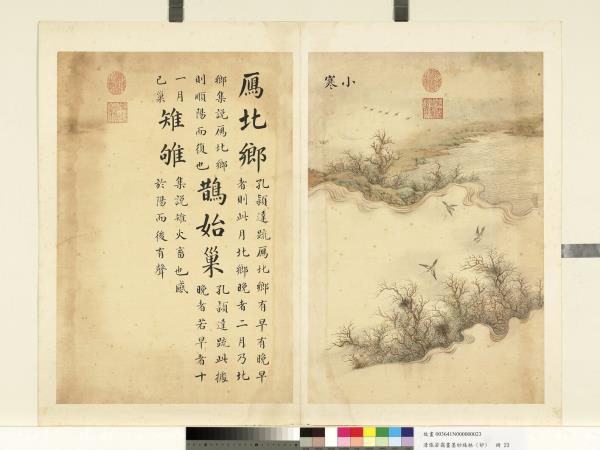 小寒
鴈北鄉
孔頴達疏鴈北鄉有早有晚早
者則此月北鄉晚者二月乃北
鄉集說鴈北鄉
則順陽而復也
鵲始巢
孔頴達疏此據
晚者若早者十
一月
已巢
雉雊
集說雉火畜也感
於陽而後有聲
故畫 003641N000000023
清張若靄畫墨妙珠林（卯） 冊 23